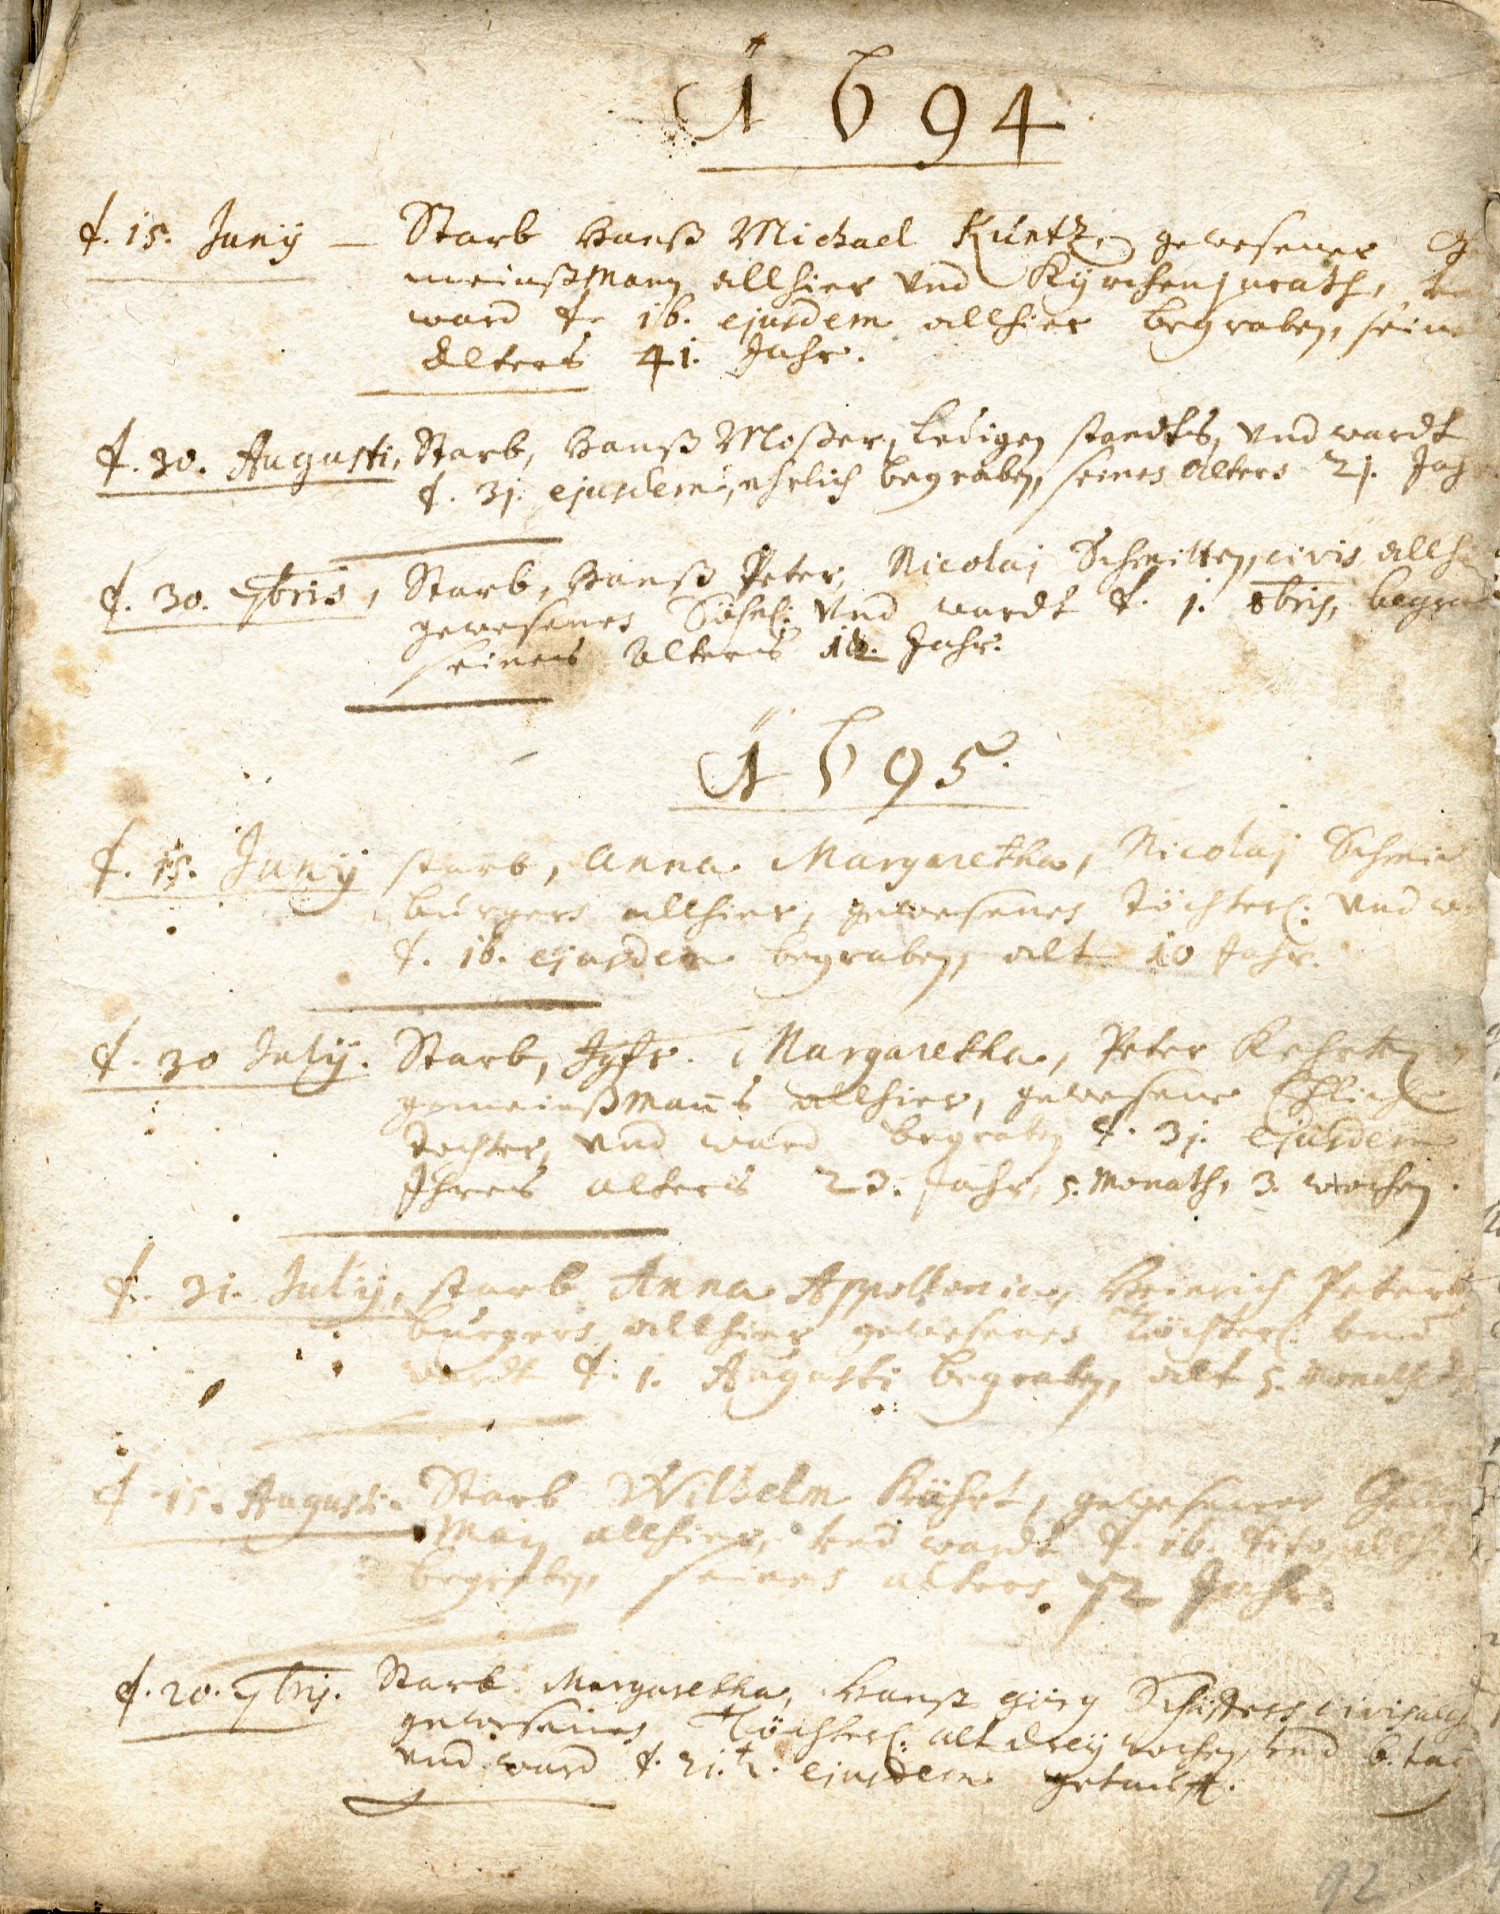 1694
d. 15. Junÿ — Starb Hanß Michael Kuntz, gewesener Ge
meinßman allhier Vnd Kÿrchenjurath,
ward d. 16. ejusdem allhier begraben, seines
Alters 41. Jahr.
d. 30. Augusti, Starb, Hanß Moßer, ledigen standts, Vnd wardt
d. 31. ejusdem, ehrlich begraben, seines Alters 21. Jahr
d. 30. 7bris, Starb, Hanß Peter, Nicolaj Schmitten, civis allhier
gewesenes Söhnl: Vnd wardt d. 1. 8bris, begrab
seines Alters Jahr.
1695.
d. 15. Junÿ starb, Anna Margaretha, Nicolaj Schmid
burgers allhier, gewesenes Töchterl: Vnd
d. 16. ejusdem begraben, alt 10 Jahr.
d. 30 Julÿ. Starb, Jgfr. Margaretha, Peter Kehrten
gemeinßmans allhier, gewesene Ehliche
Tochter, Vnd ward begraben d. 31. ejusdem
Ihres alters 23. Jahr, 5. Monath, 3. wochen.
d. 31. Julÿ, starb Anna Appollonia, Heinrich Peter
burgers allhier gewesenes Töchterl: Vnd
wardt d. 1. Augusti begraben, alt 5. monath
d. 15. Augusti. Starb Wilhelm Kührt, gewesener Gem
Man allhier, Vnd wardt d. 16. dito, allhier
begraben, seines alters 72 Jahr.
d. 20. 7bris. Starb Margaretha, Hanß Görg civis allh
gewesenes Töchterl: alt dreÿ wochen, Vnd 6. tag
Vnd ward d. 21.t ejusdem getaufft.
92